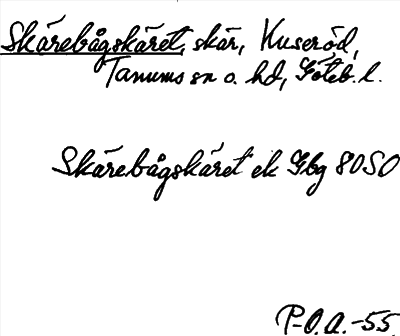 Skärebågskäret, skär, Huseröd,
Tanums sn o. hd, Göteb. l.
Skärebågskäret ek Gbg 80SO
P-O.A.-55